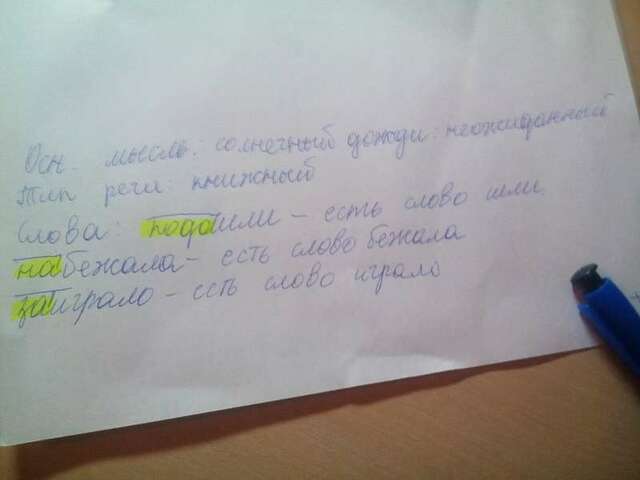 Осн. мысль: солнечный дожди: неожиданный
Тип речи: книжный
Слова: подошли – есть слово шли
набежала – есть слово бежала
заиграло – есть слово играло